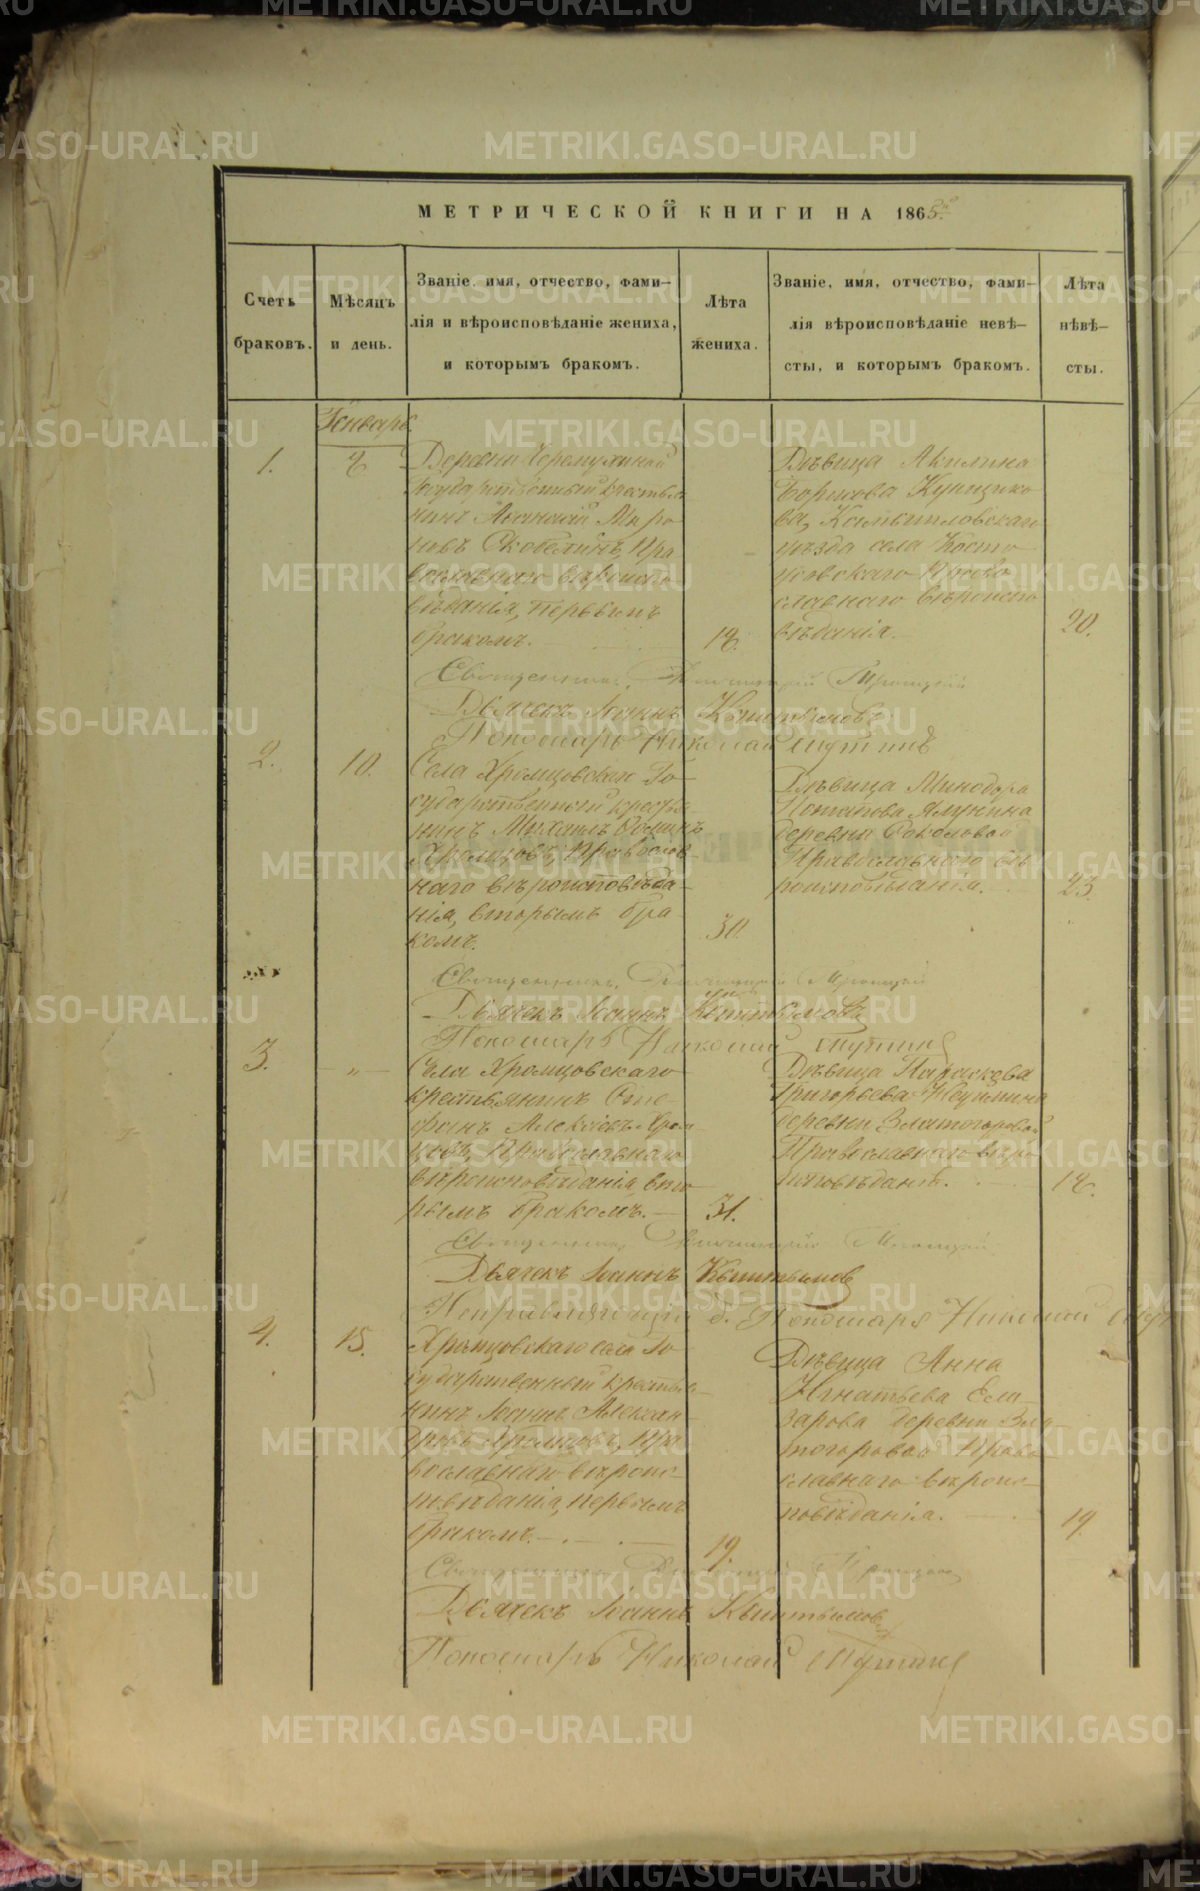 МЕТРИЧЕСКОЙ КНИГИ НА 1865й
Счетъ браковъ.
Мѣсяцъ и день.
Званіе, имя, отчество, фами-
лія и вѣроисповѣданіе жениха,
и которымъ бракомъ.
Лѣта жениха.
Званіе, имя, отчество, фами-
лія вѣроисповѣданіе невѣ-
сты, и которымъ бракомъ.
Лѣта нѣвѣ-
сты.
Генварь
1.
Деревни Черемухиной
Государственный крестья
нинъ Миро
новъ Скобелинъ, Пра
вославнаго вѣроиспо
вѣданія, первымъ
бракомъ.
Дѣвица Акилина
Борисова
ва, Камышловскаго
уѣзда села
Право
славнаго вѣроиспо
вѣданія.
20.
Священникъ Троицкій
Дьячекъ Іоаннъ Кыштымовъ
Пономарь Николай
2.
10.
Села Хромцовскаго Го-
сударственный крестья
нинъ Михаилъ
Хромцовъ, Православ-
наго вѣроисповѣда
нія, вторымъ бра-
комъ.
30.
Дѣвица Минодора
Потапова Ялунина
деревни Соколовой
Православнаго вѣ
роисповѣданія.
23.
Священникъ Троицкій
Дьячекъ Іоаннъ Кыштымовъ
Пономарь Николай
3.
"
Села Хромцовскаго
крестьянинъ Сте-
фанъ Алексѣевъ Хром
цовъ, Православнаго
вѣроисповѣданія, вто
рымъ бракомъ.
31.
Дѣвица Параскева
Григорьева Неуймина
деревни Златогоровой
Православнаго вѣро
исповѣданія.
Священникъ Троицкій
Дьячекъ Іоаннъ Кыштымовъ
Исправляющій д. Пономаря Николай
4.
15.
Хромцовскаго села Го-
сударственный крестья-
нинъ Іоаннъ Алексан-
дровъ Хромцовъ, Пра
вославнаго вѣроис-
повѣданія, первымъ
бракомъ.
19.
Дѣвица Анна
Игнатьева Ели-
зарова деревни Зла-
тогоровой Право-
славнаго вѣроис-
повѣданія.
19.
Священникъ Троицкій
Дьячекъ Іоаннъ Кыштымовъ
Пономарь Николай
METRIKI.GASO-URAL.RU